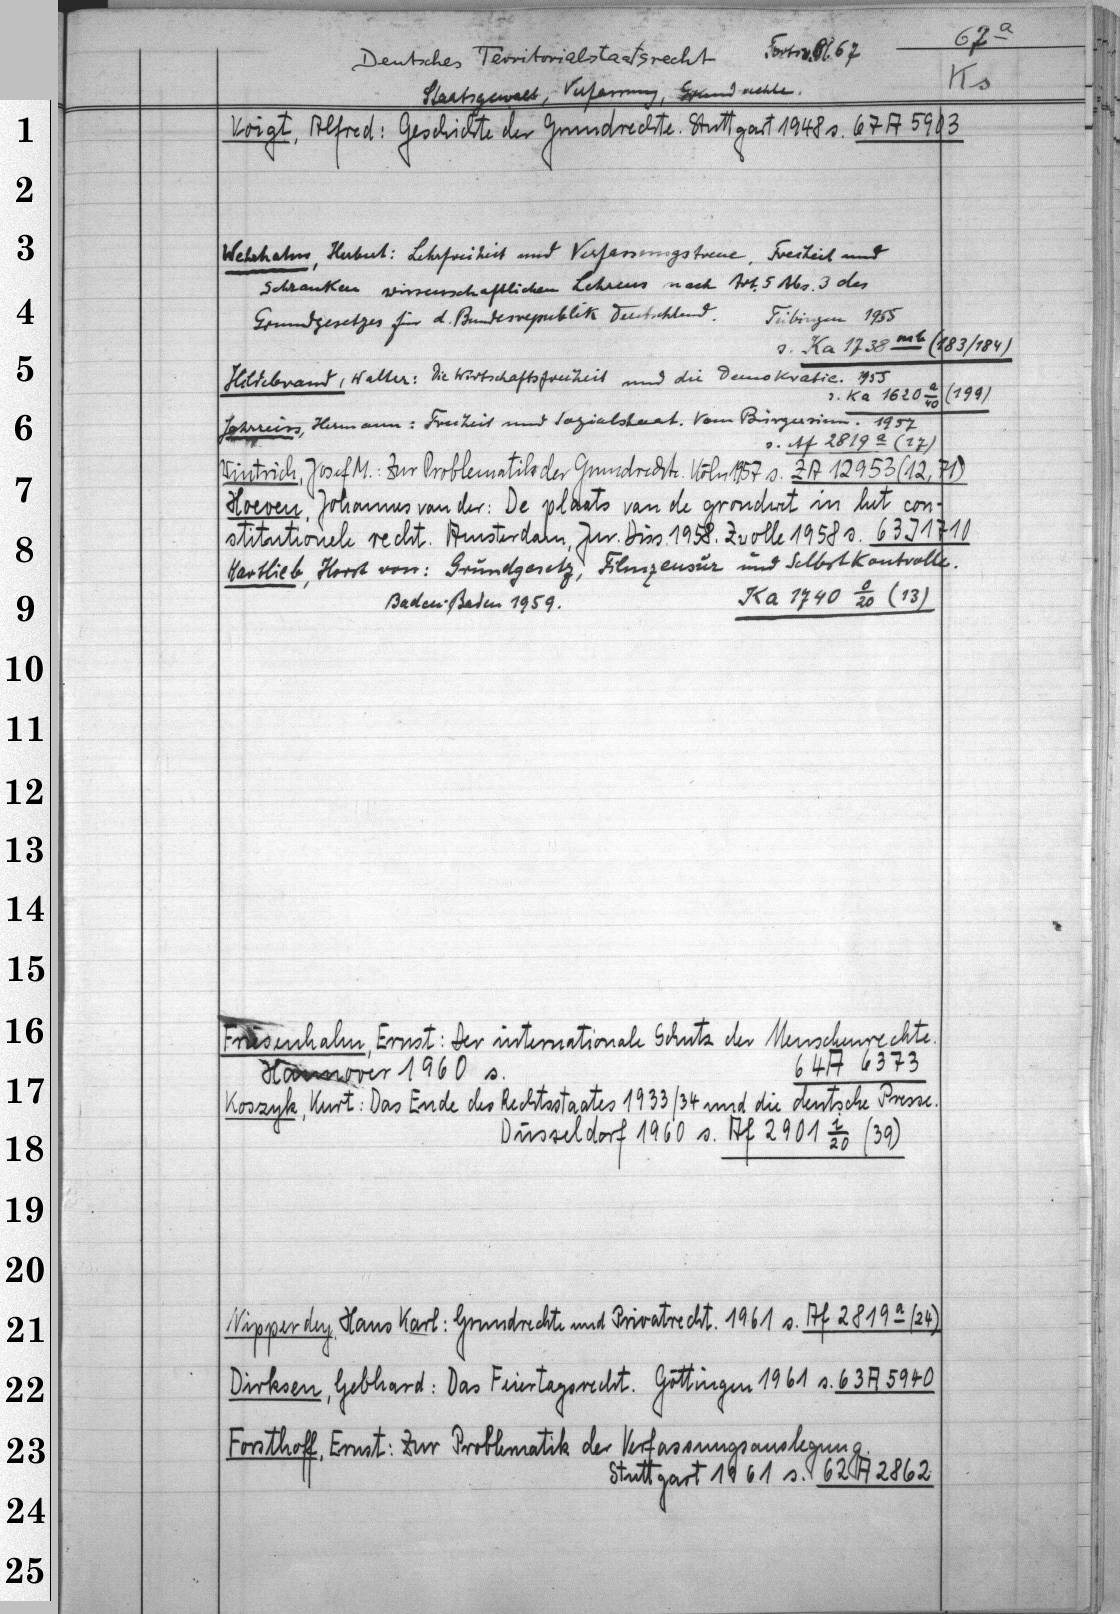 67a
Deutsches Territorialstaatsrecht Forts. v. Bl. 67
Ks
Staatsgewalt, Verfassung, Grundrechte.
1
Voigt, Alfred: Geschichte der Grundrechte. Stuttgart 1948 s. 67 A 5903
2
3
Wehrhahn, Herbert: Lehrfreiheit und Verfassungstreue. Freiheit und
Schranken wissenschaftlichen Lehrens nach Art. 5 Abs. 3 des
4
Grundgesetzes für d. Bundesrepublik Deutschland. Tübingen 1955
s. Ka 1738 mb (183/184)
5
Hildebrand, Walter: Die Wirtschaftsfreiheit und die Demokratie. 1955
s. Ka 1620 a/40 (199)
6
Jahrreiss, Hermann: Freiheit und Sozialstaat. Vom Bürgersinn. 1957
s. Af 2819 a (17)
Wintrich, Josef M.: Zur Problematik der Grundrechte. Köln 1957 s. ZA 12953 (12, 71)
7
Hoeven, Johannes van der: De plaats van de grondwet in het con-
8
stitutionele recht. Amsterdam, Jur. Diss. 1958. Zwolle 1958 s. 63 J 1710
Hartlieb, Horst von: Grundgesetz, Filmzensur und Selbstkontrolle.
9
Baden-Baden 1959. Ka 1740 o/20 (13)
10
11
12
13
14
15
16
Friesenhahn, Ernst: Der internationale Schutz der Menschenrechte.
Hannover 1960 s. 64 A 6373
17
Koszyk, Kurt: Das Ende des Rechtsstaates 1933/34 und die deutsche Presse.
18
Düsseldorf 1960 s. Af 2901 i/20 (39)
19
20
21
Nipperdey, Hans Karl: Grundrechte und Privatrecht. 1961 s. Af 2819 a (24)
22
Dirksen, Gebhard: Das Feiertagsrecht. Göttingen 1961 s. 63 A 5940
23
Forsthoff, Ernst: Zur Problematik der Verfassungsauslegung.
Stuttgart 1961 s. 62 A 2862
24
25